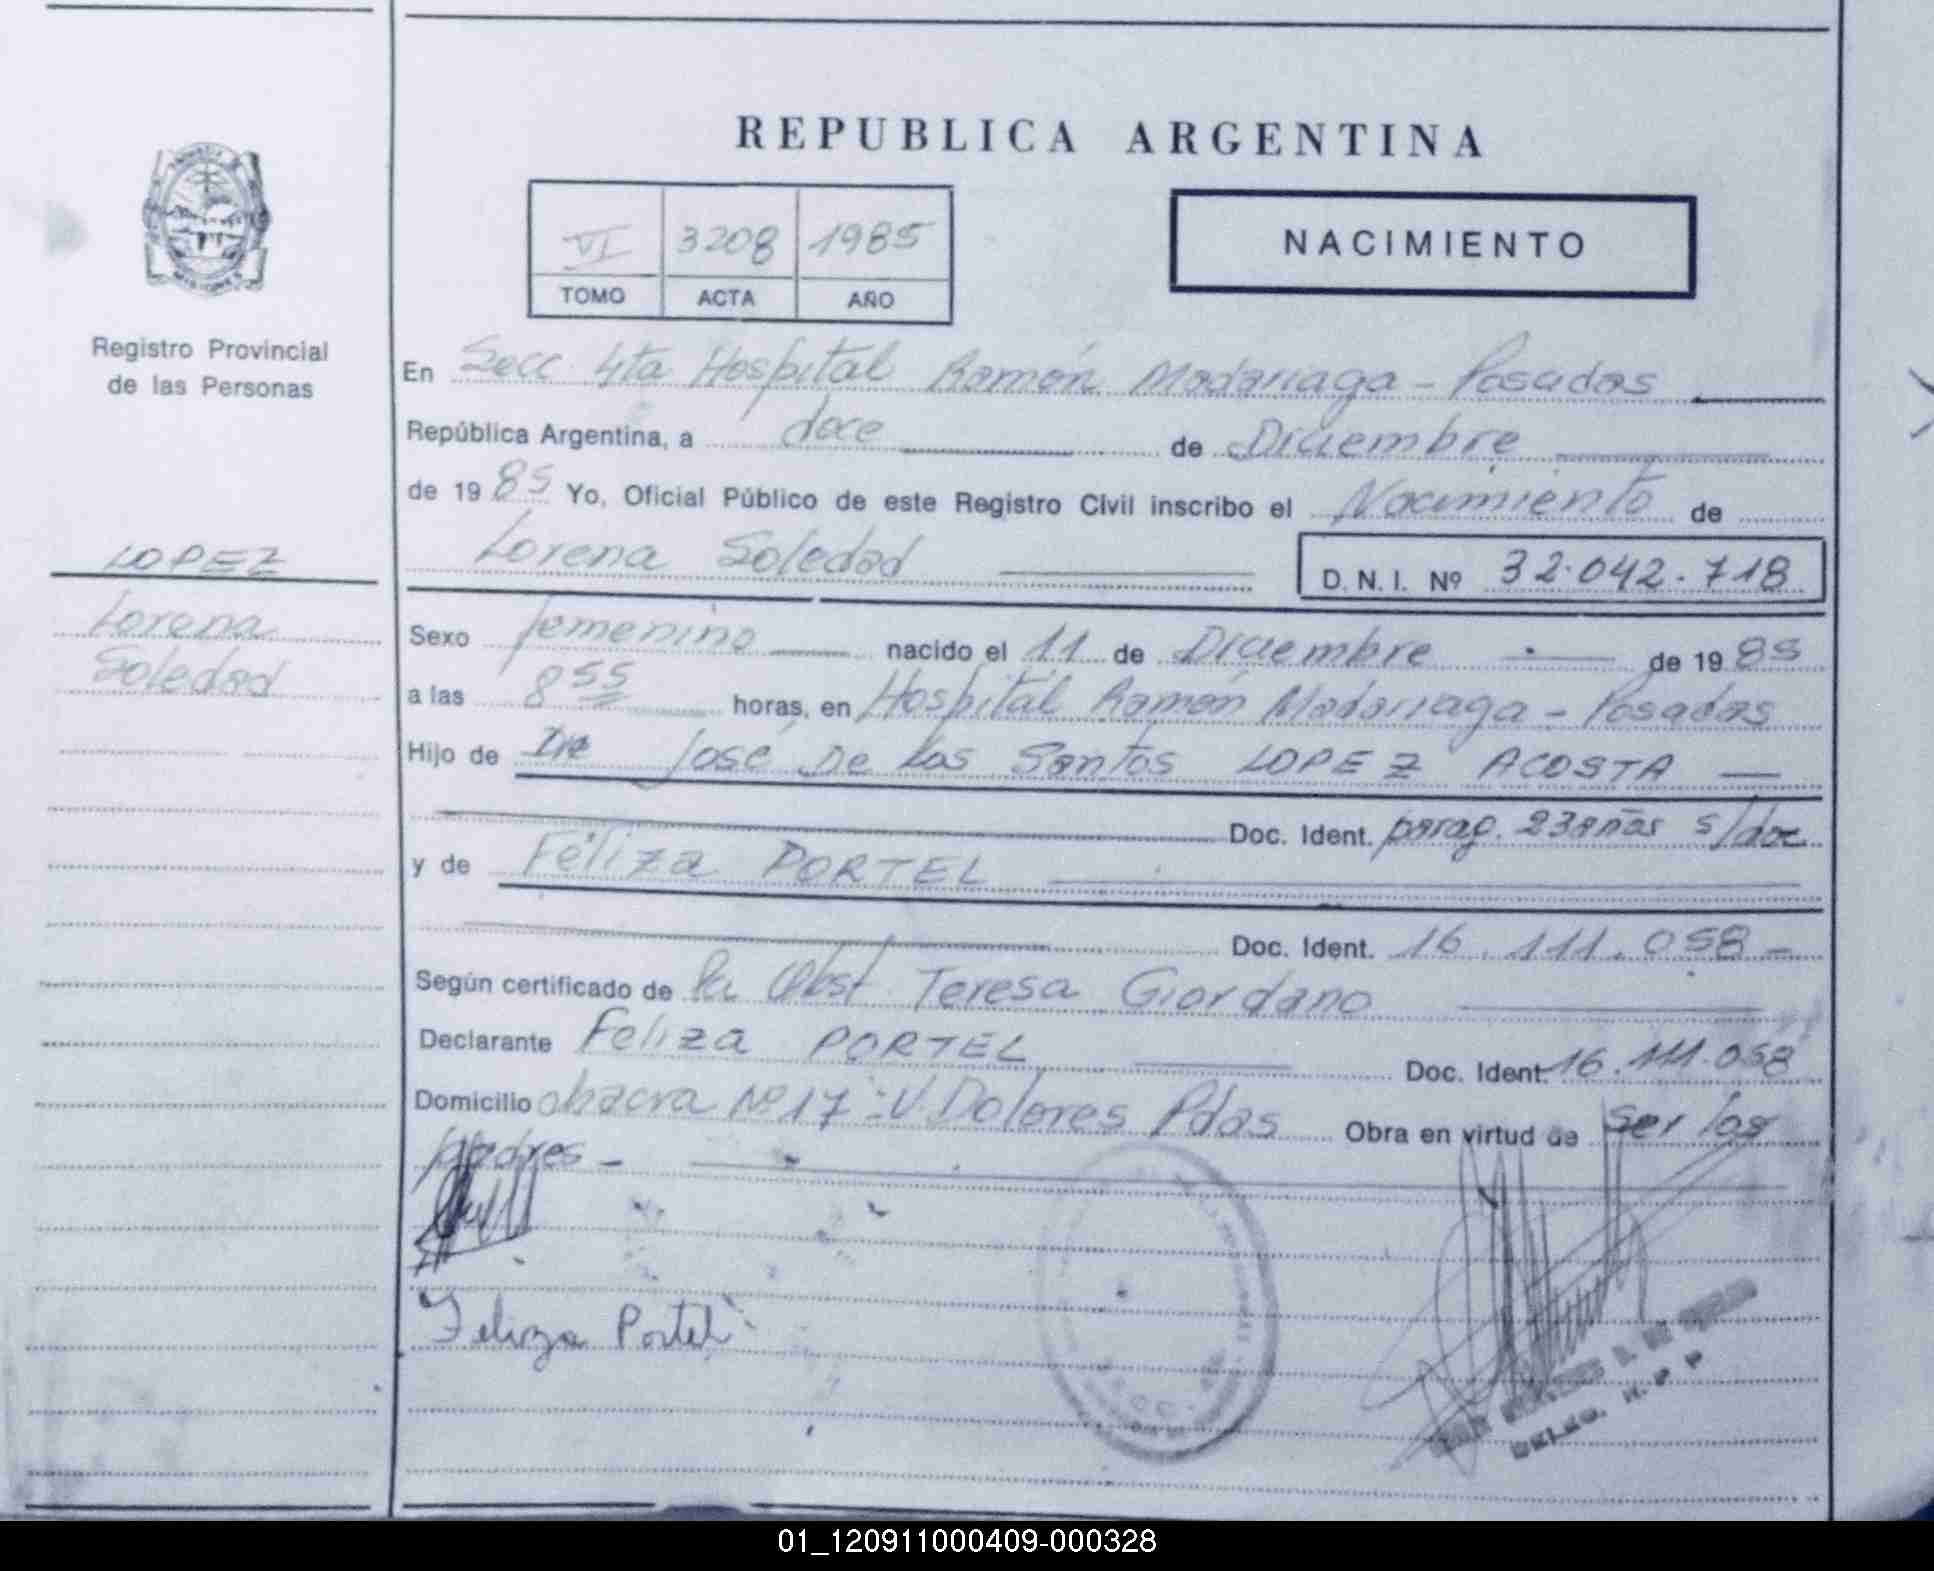 REPUBLICA ARGENTINA
VI 3208 1985
TOMO ACTA AÑO
NACIMIENTO
Registro Provincial
de las Personas
LOPEZ
Lorena
Soledad
En Secc 4ta Hospital Ramón Madariaga - Posadas
República Argentina, a doce de Diciembre
de 19 85 Yo, Oficial Público de este Registro Civil inscribo el Nacimiento de
Lorena Soledad D. N. I. Nº 32.042.718
Sexo femenino nacido el 11 de Diciembre de 19 85
a las 8 55 horas, en Hospital Ramón Madariaga - Posadas
Hijo de José De Los Santos LOPEZ ACOSTA
Doc. Ident. parag. 23 años s/doc
y de Féliza PORTEL
Doc. Ident. 16.111.058 -
Según certificado de la Obst Teresa Giordano
Declarante Feliza PORTEL Doc. Ident. 16.111.058
Domicilio chacra Nº 17 - V. Dolores Pdas Obra en virtud de ser los
padres -
Feliza Portel
DELEG. R. P. P
01_120911000409-000328